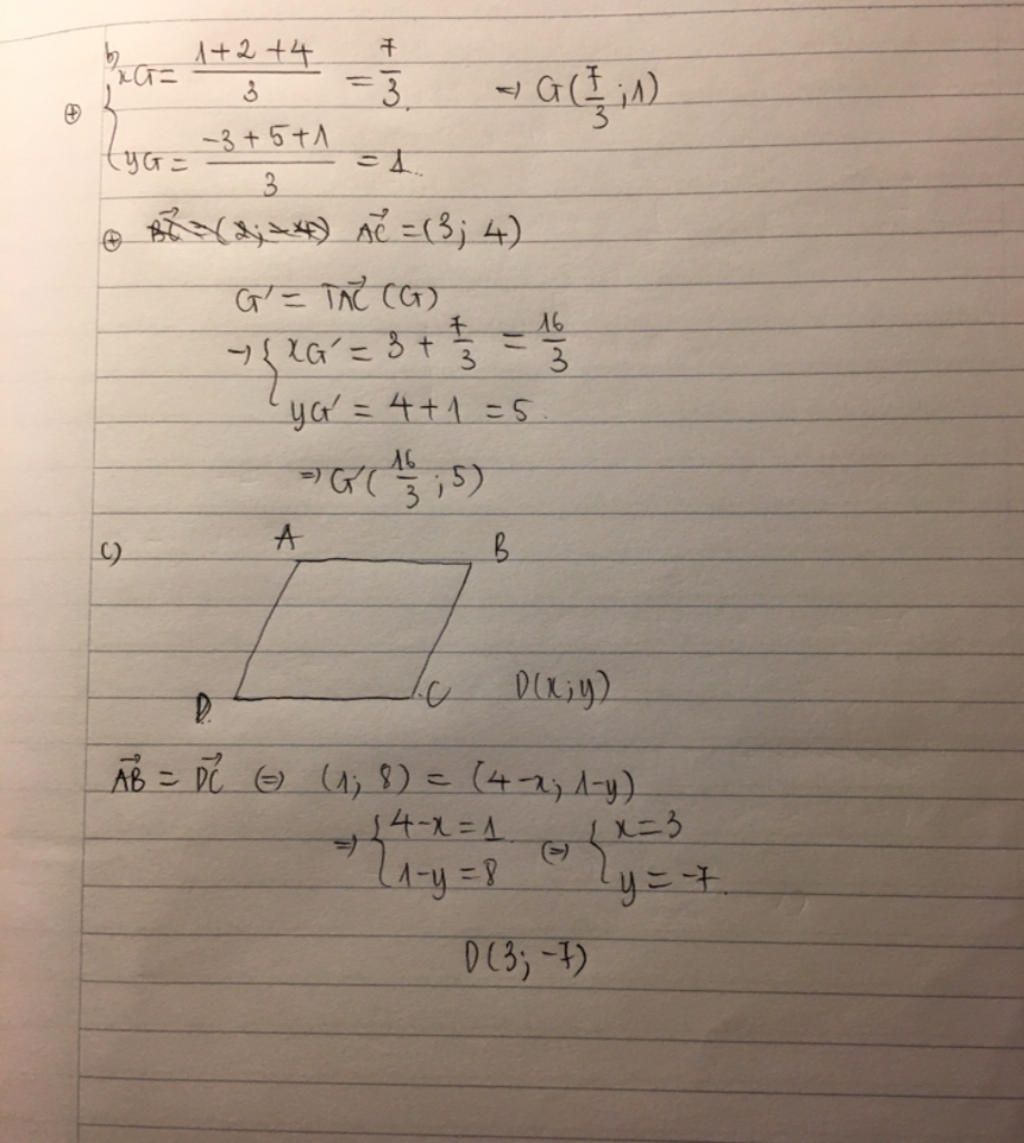 b)
xG = (1+2+4)/3 = 7/3 ⇒ G(7/3 ; 1)
⊕ {
yG = (-3+5+1)/3 = 1.
⊕ B⃗C = (2; -4) A⃗C = (3; 4)
G' = TA⃗C (G)
→ { xG' = 3 + 7/3 = 16/3
yG' = 4+1 = 5.
⇒ G'(16/3 ; 5)
c) A B
D C D(x;y)
A⃗B = D⃗C ⇔ (1; 8) = (4-x; 1-y)
⇒ { 4-x = 1 ⇔ { x = 3
1-y = 8 y = -7.
D(3; -7)